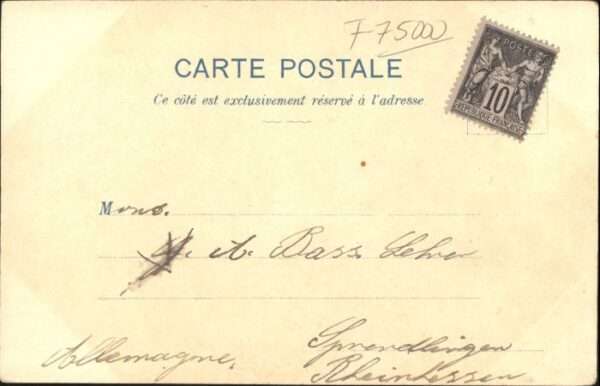 F 75000
CARTE POSTALE
Ce côté est exclusivement réservé à l'adresse
POSTES
10
REPUBLIQUE FRANÇAISE
Mons.
A. Bass Lehrer
Sprendlingen
Allemagne. Rheinhessen